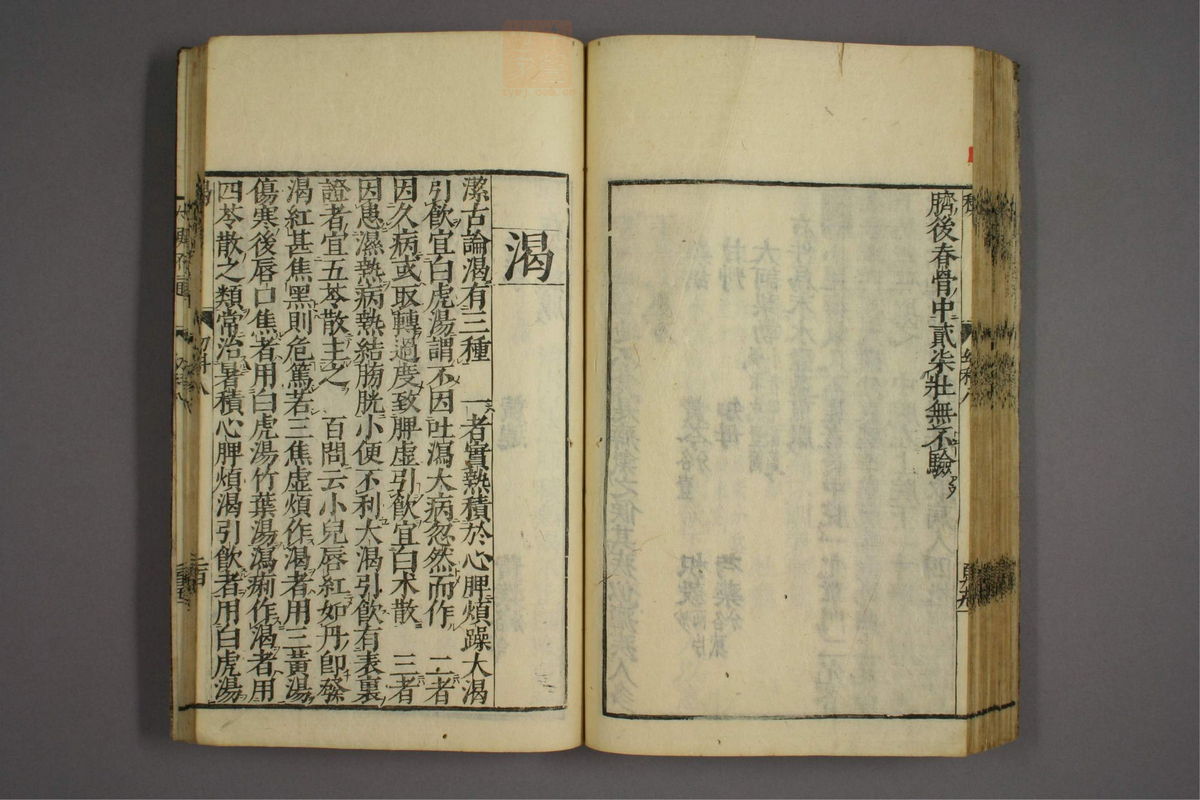 臍後脊骨中貳柒壯無不驗
渴
潔古論渴有三種 一者實熱積於心脾煩躁大渴
引飲宜白虎湯謂不因吐瀉大病忽然而作 二者
因久病或取轉過度致脾虛引飲宜白朮散 三者
因患濕熱病熱結膀胱小便不利大渴引飲有表裏
證者宜五苓散主之 百問云小兒唇紅如丹即發
渴紅甚焦黑則危篤若三焦虛煩作渴者用三黃湯
傷寒後唇口焦者用白虎湯竹葉湯瀉痢作渴者用
四苓散之類常治暑積心脾煩渴引飲者用白虎湯